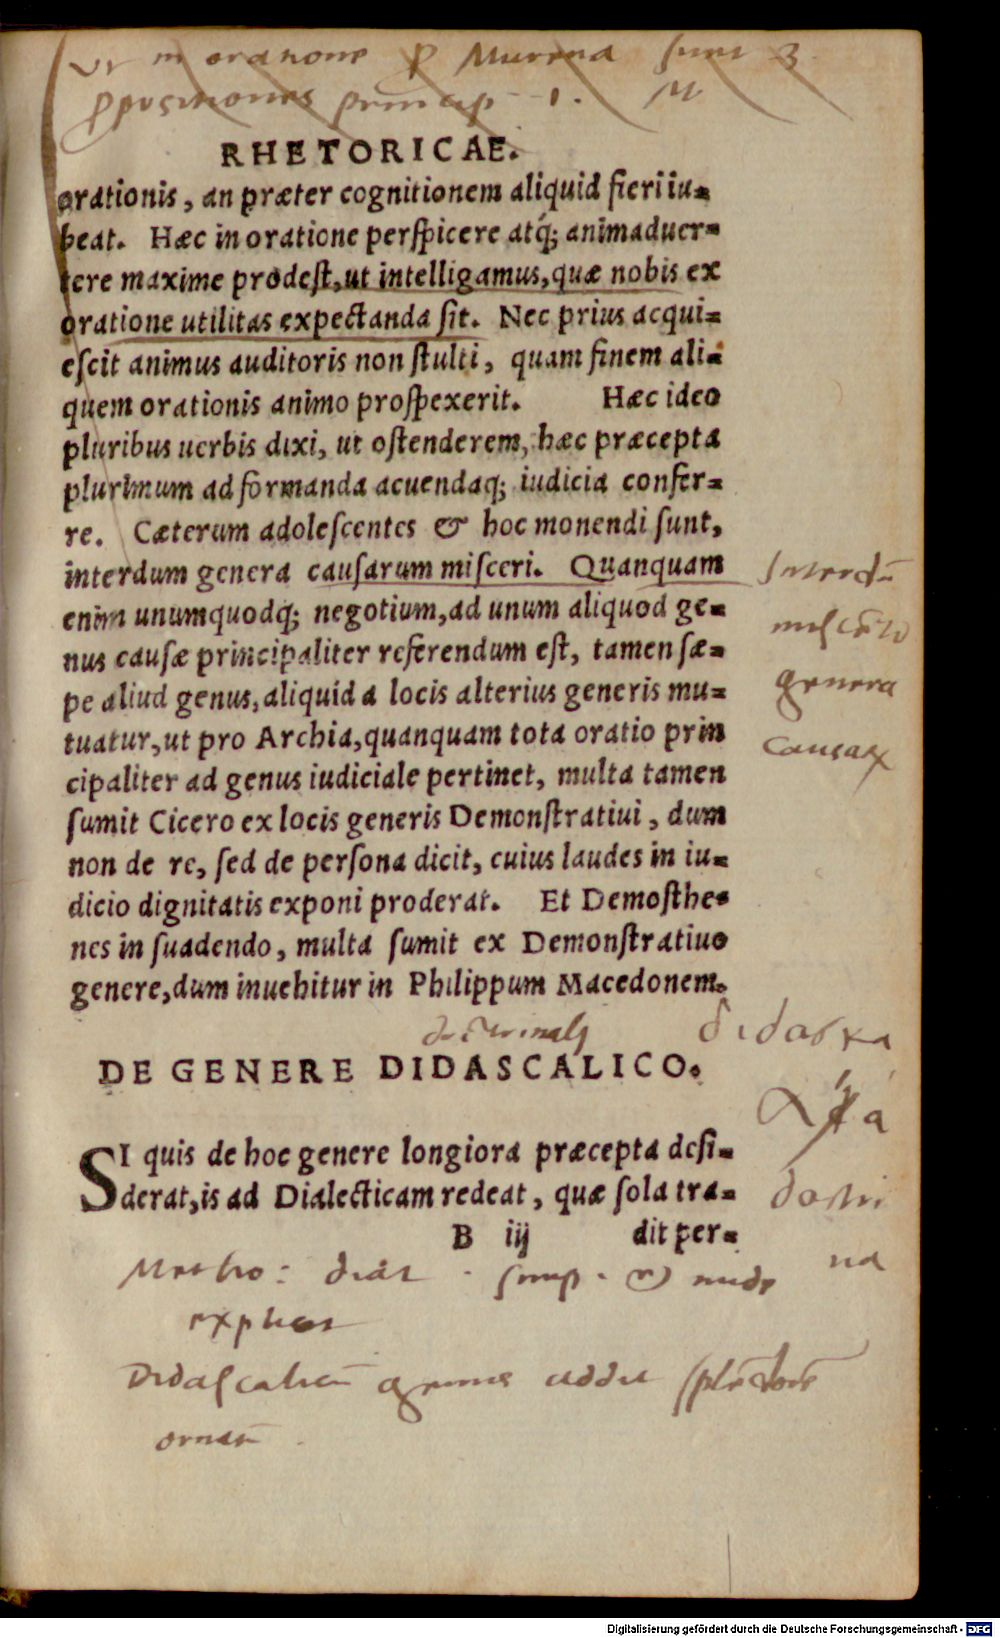 Ut in oratione p Murena sunt 3.
RHETORICAE.
orationis, an præter cognitionem aliquid fieri iu=
beat. Hæc in oratione perspicere atq́; animaduer=
tere maxime prodest, ut intelligamus, quæ nobis ex
oratione utilitas expectanda sit. Nec prius acqui=
escit animus auditoris non stulti, quam finem ali=
quem orationis animo prospexerit. Hæc ideo
pluribus uerbis dixi, ut ostenderem, hæc præcepta
plurimum ad formanda acuendaq; iudicia confer=
re. Cæterum adolescentes & hoc monendi sunt,
interdum genera causarum misceri. Quanquam
enim unumquodq; negotium, ad unum aliquod ge=
nus causæ principaliter referendum est, tamen sæ=
pe aliud genus, aliquid a locis alterius generis mu=
tuatur, ut pro Archia, quanquam tota oratio prin
cipaliter ad genus iudiciale pertinet, multa tamen
sumit Cicero ex locis generis Demonstratiui, dum
non de re, sed de persona dicit, cuius laudes in iu=
dicio dignitatis exponi proderat. Et Demosthe=
nes in suadendo, multa sumit ex Demonstratiuo
genere, dum inuehitur in Philippum Macedonem.
Interdū
genera
DE GENERE DIDASCALICO.
SI quis de hoc genere longiora præcepta desi=
derat, is ad Dialecticam redeat, quæ sola tra=
B iij dit per=
doctri
na
Didascalicū genus addit splēdorē